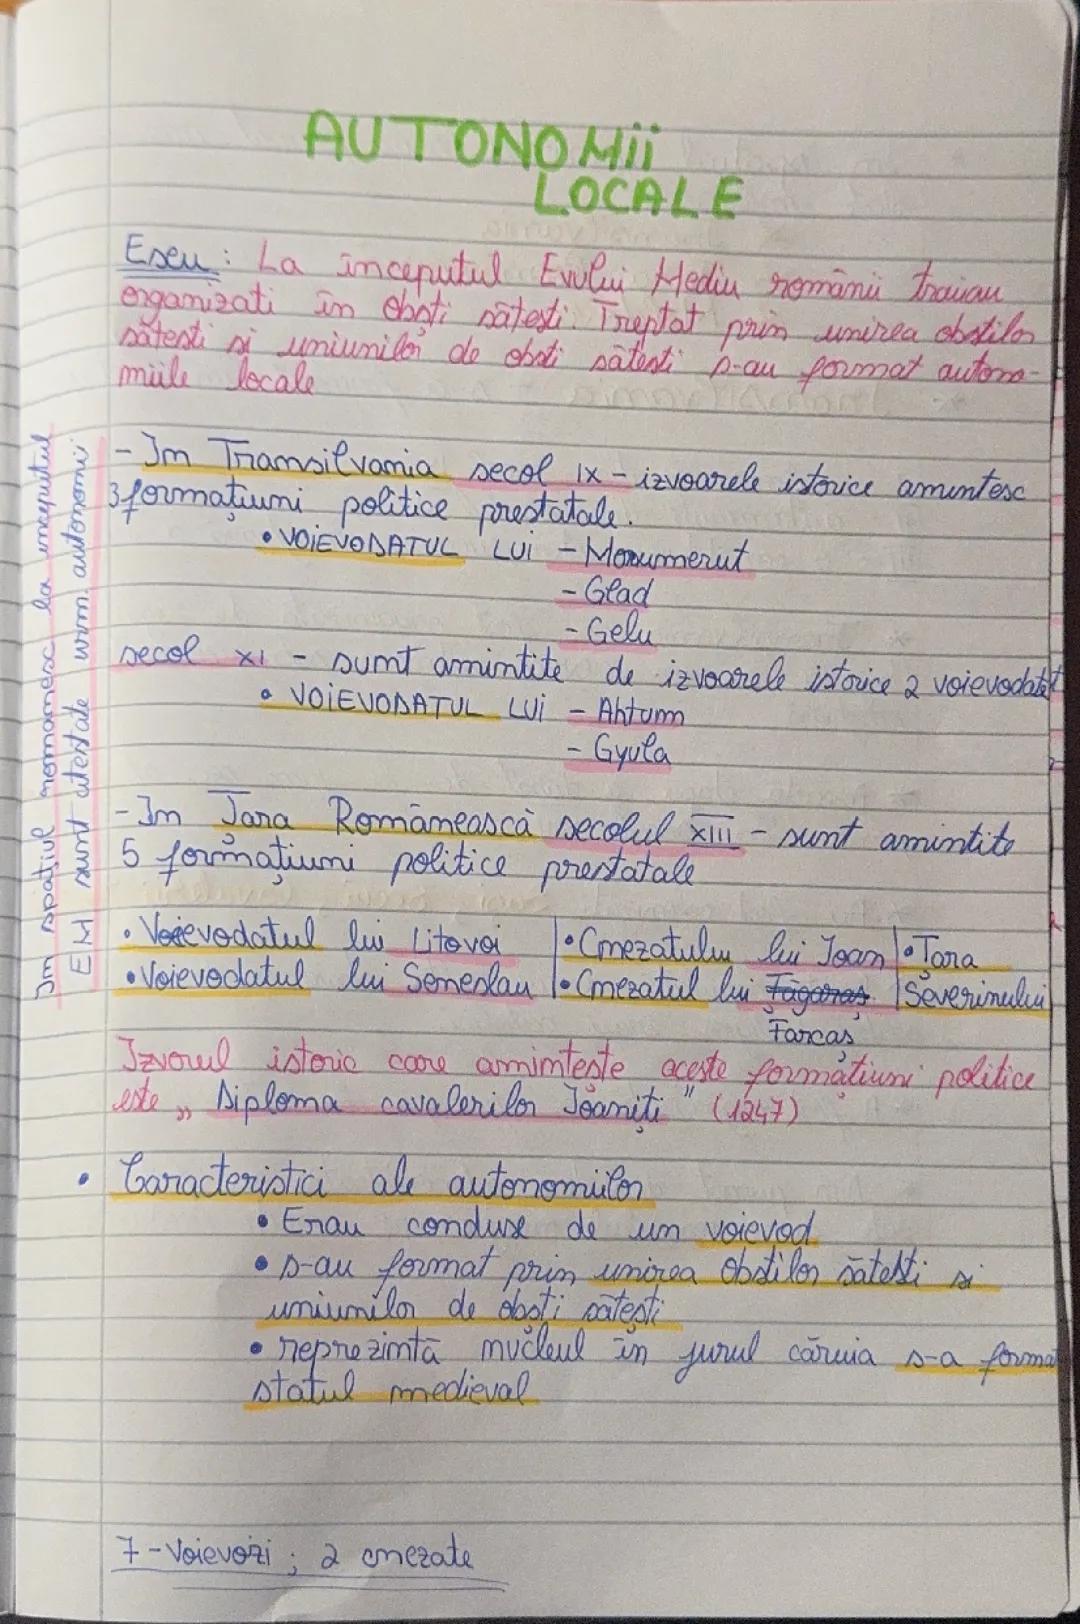 AUTONOMii
LOCALE
Eseu: La începutul Evului Mediu românii traiau
organizati în obști sătești. Treptat prin unirea obstilor
sătesti si uniunilor de obsti sătesti s-au format autono-
miile locale
În spațiul românesc la începutul
EM sunt atestate urm. autonomii
- În Transilvania secol IX - izvoarele istorice amintesc
3 formațiuni politice prestatale.
• VOIEVODATUL LUI - Morumerut
- Glad
- Gelu
secol XI - sunt amintite de izvoarele istorice 2 voievodate
• VOIEVODATUL LUI - Ahtum
- Gyula
- În Țara Românească secolul XIII - sunt amintite
5 formațiuni politice prestatale
• Voievodatul lui Litovoi |• Cnezatului lui Ioan |• Țara
• Voievodatul lui Semeslau |• Cnezatul lui Făgăraș |Severinului
Farcaș
Izvorul istoric care amintește aceste formațiuni politice
este „Diploma cavalerilor Ioaniți" (1247)
• Caracteristici ale autonomiilor
• Erau conduse de un voievod
• s-au format prin unirea obstilor sătesti si
uniunilor de obsti sătesti
• reprezintă nucleul în jurul căruia s-a format
statul medieval
7 - Voievozi; 2 cnezate